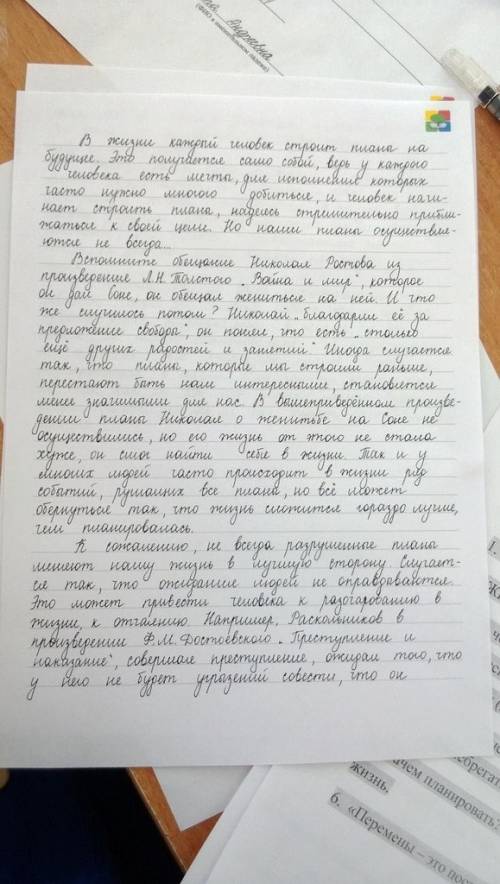 Андреевна
В жизни каждый человек строит планы на
будущее. Это получается само собой, ведь у каждого
человека есть мечты, для исполнения которых
часто нужно многого добиться, и человек начи-
нает строить планы, надеясь стремительно прибли-
жаться к своей цели. Но наши планы осуществля-
ются не всегда...
Вспомните обещание Николая Ростова из
произведения Л.Н. Толстого „Война и мир", которое
он дал Соне, он обещал жениться на ней. И что
же случилось потом? Николай „благодарил её за
предложение свободы", он понял, что есть „столько
ещё других радостей и занятий" Иногда случается
так, что планы, которые мы строили раньше,
перестают быть нам интересными, становятся
менее значимыми для нас. В вышеприведённом произве-
дении планы Николая о женитьбе на Соне не
осуществились, но его жизнь от этого не стала
хуже, он смог найти себя в жизни. Так и у
многих людей часто происходит в жизни ряд
событий, рушащих все планы, но всё может
обернуться так, что жизнь сложится гораздо лучше,
чем планировалась.
К сожалению, не всегда разрушенные планы
меняют нашу жизнь в лучшую сторону. Случает-
ся так, что ожидания людей не оправдываются.
Это может привести человека к разочарованию в
жизни, к отчаянию. Например, Раскольников в
произведении Ф.М. Достоевского „Преступление и
наказание", совершая преступление, ожидал того, что
у него не будет угрызений совести, что он
чем планировать?
жизнь.
6. «Перемены – это пос